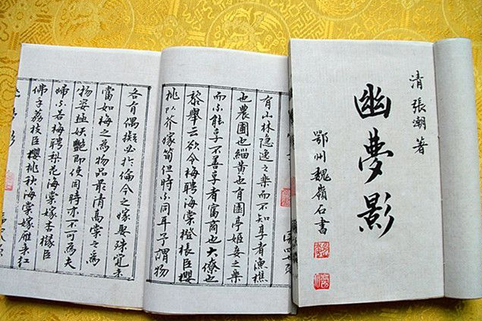 清 張潮著
幽夢影
鄂州魏嶺石書
有山林隱逸之樂而不知享者漁樵
也農圃也緇黃也有園亭姬妾之樂
而不能享不善享者富商也大僚也
黎舉云欲令梅聘海棠橙臣櫻
桃以芥嫁筍但時不同耳予謂物
各有偶擬必於倫今之嫁娶殊覺未
當如梅之為物品最清高棠之為
物姿極妖艷即使同時亦不可為夫
婦不若梅聘梨花海棠嫁杏櫞臣
佛手荔枝臣櫻桃秋海棠嫁雁來紅